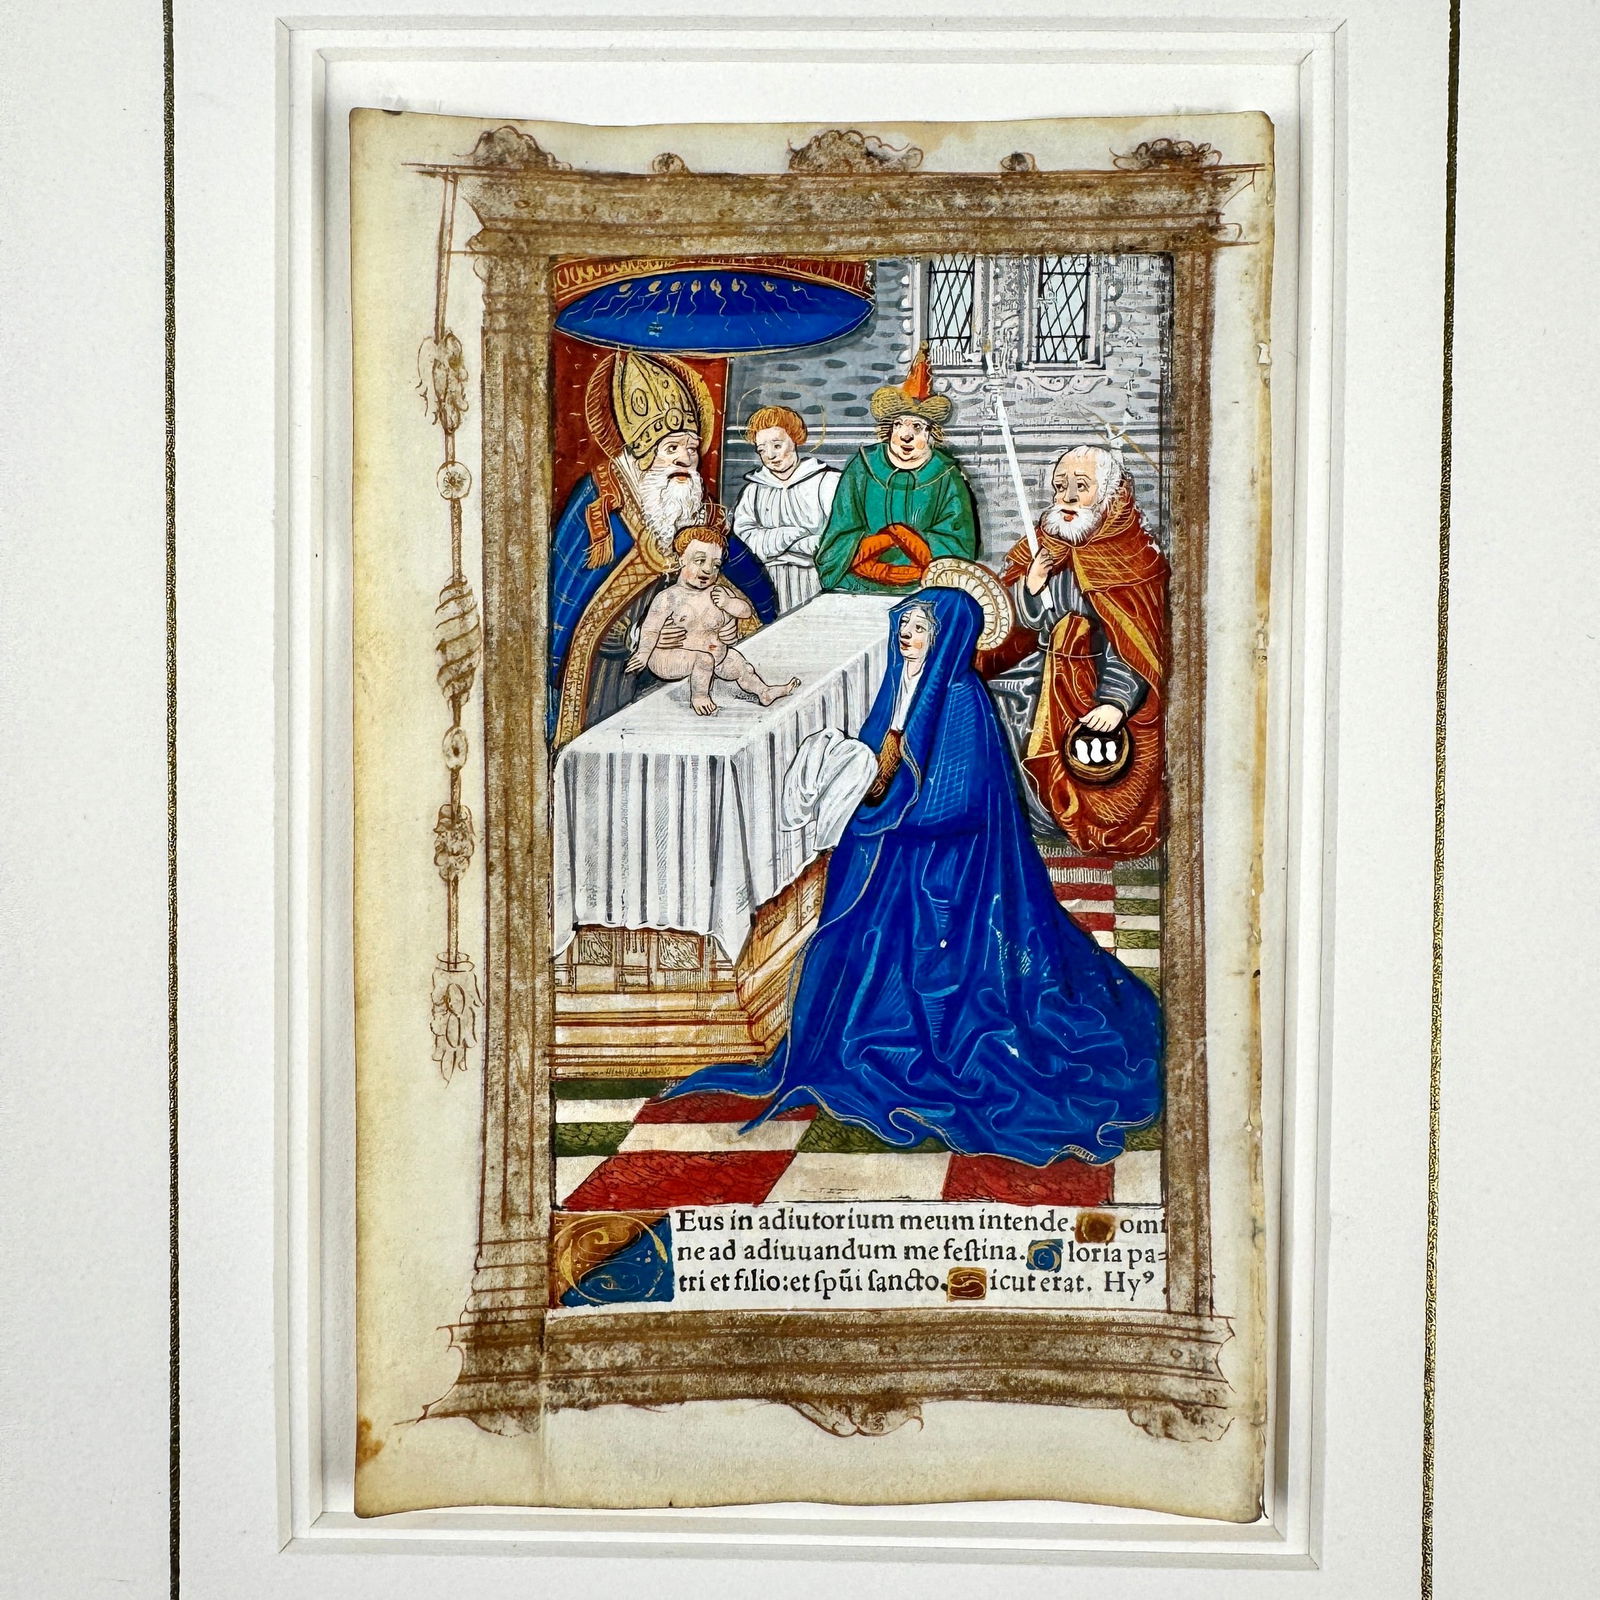 DEus in adiutorium meum intende. Domi
ne ad adiuuandum me feſtina. Gloria pa=
tri et filio: et ſpūi ſancto. Sicut erat. Hyꝰ.